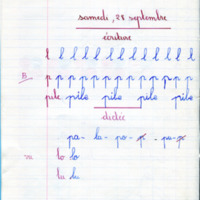 samedi, 28 septembre
écriture
l l l l l l l l l l l l
B. p p p p p p p p p p p p p p
pile pile pile pile pile
dictée
pa - la - po - - pu -
vu lo lo
lu lu